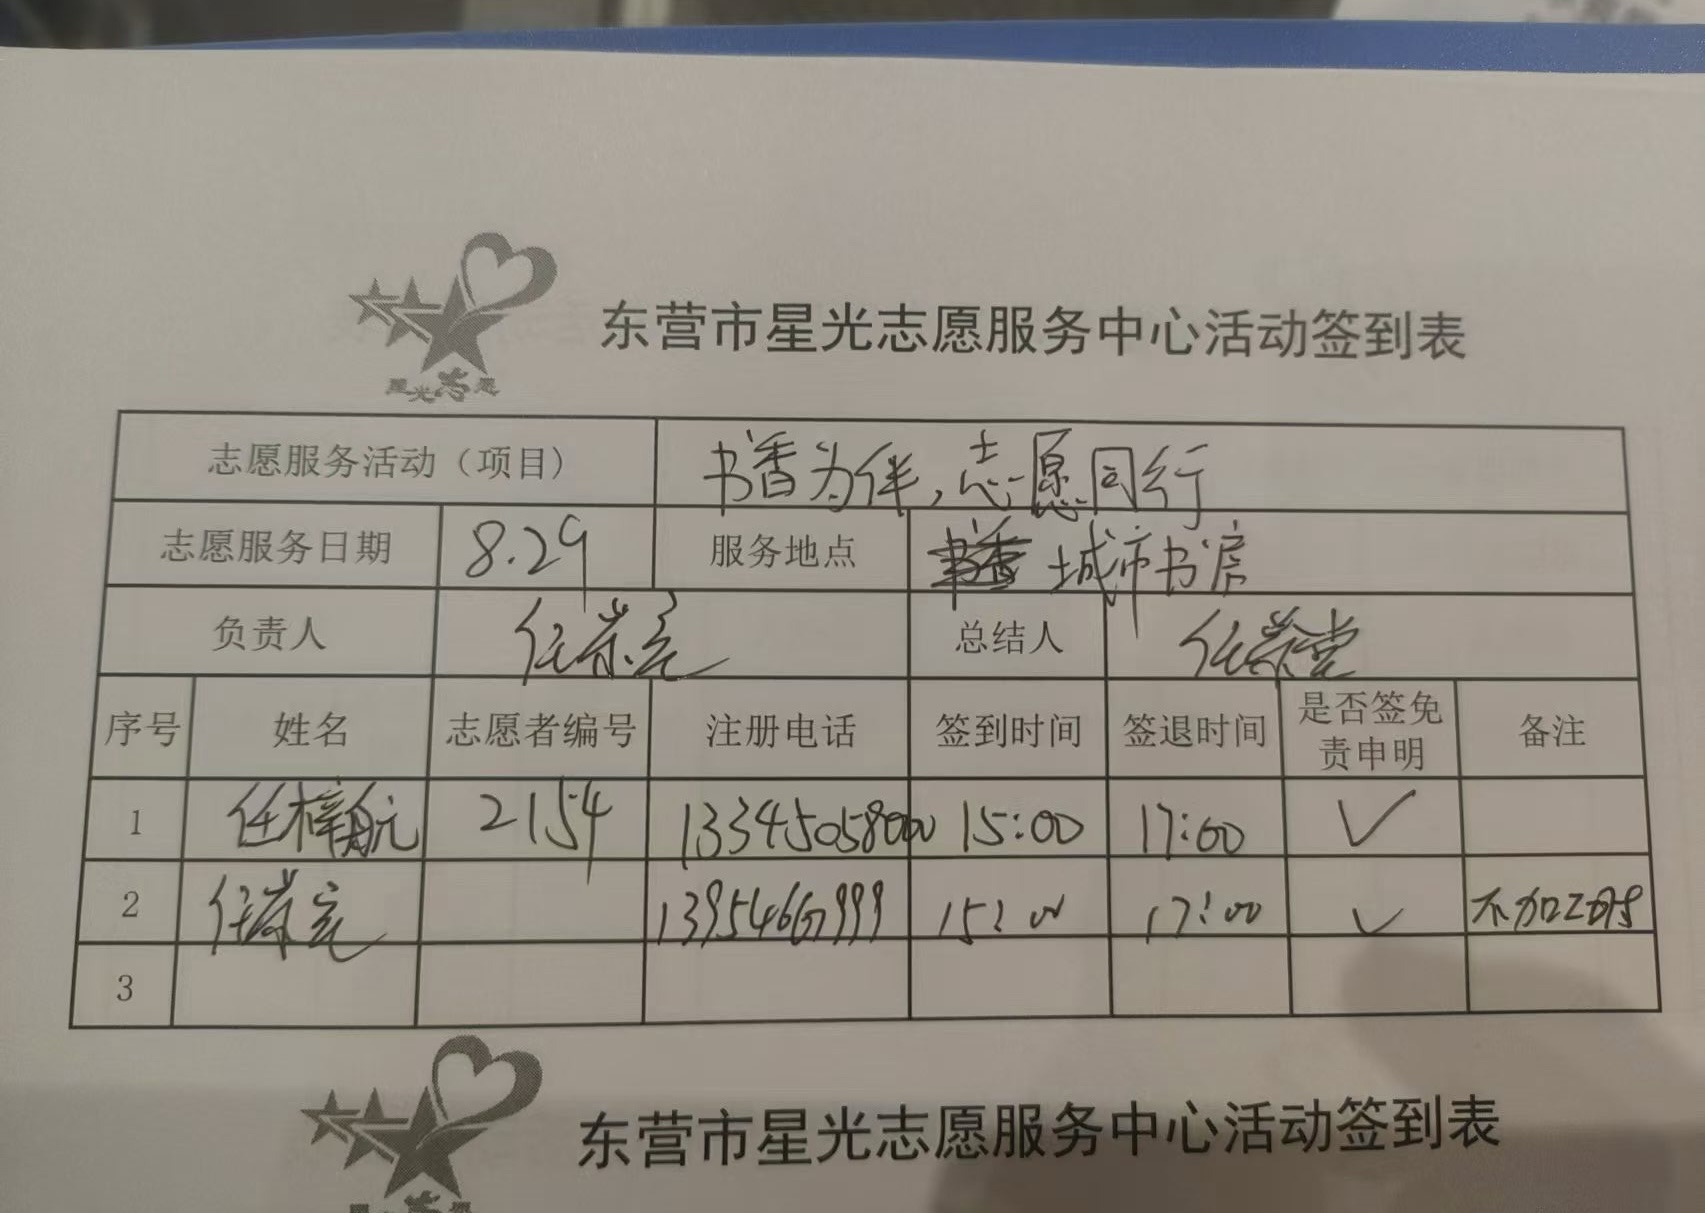 星光志愿
东营市星光志愿服务中心活动签到表
志愿服务活动（项目） 书香为伴,志愿同行
志愿服务日期 8.29 服务地点 城市书房
负责人 任 总结人 任
序号 姓名 志愿者编号 注册电话 签到时间 签退时间 是否签免责申明 备注
1 任梓航 2154 13345058000 15:00 17:00 ✓
2 任 15:00 17:00 ✓ 不加工时
3
东营市星光志愿服务中心活动签到表